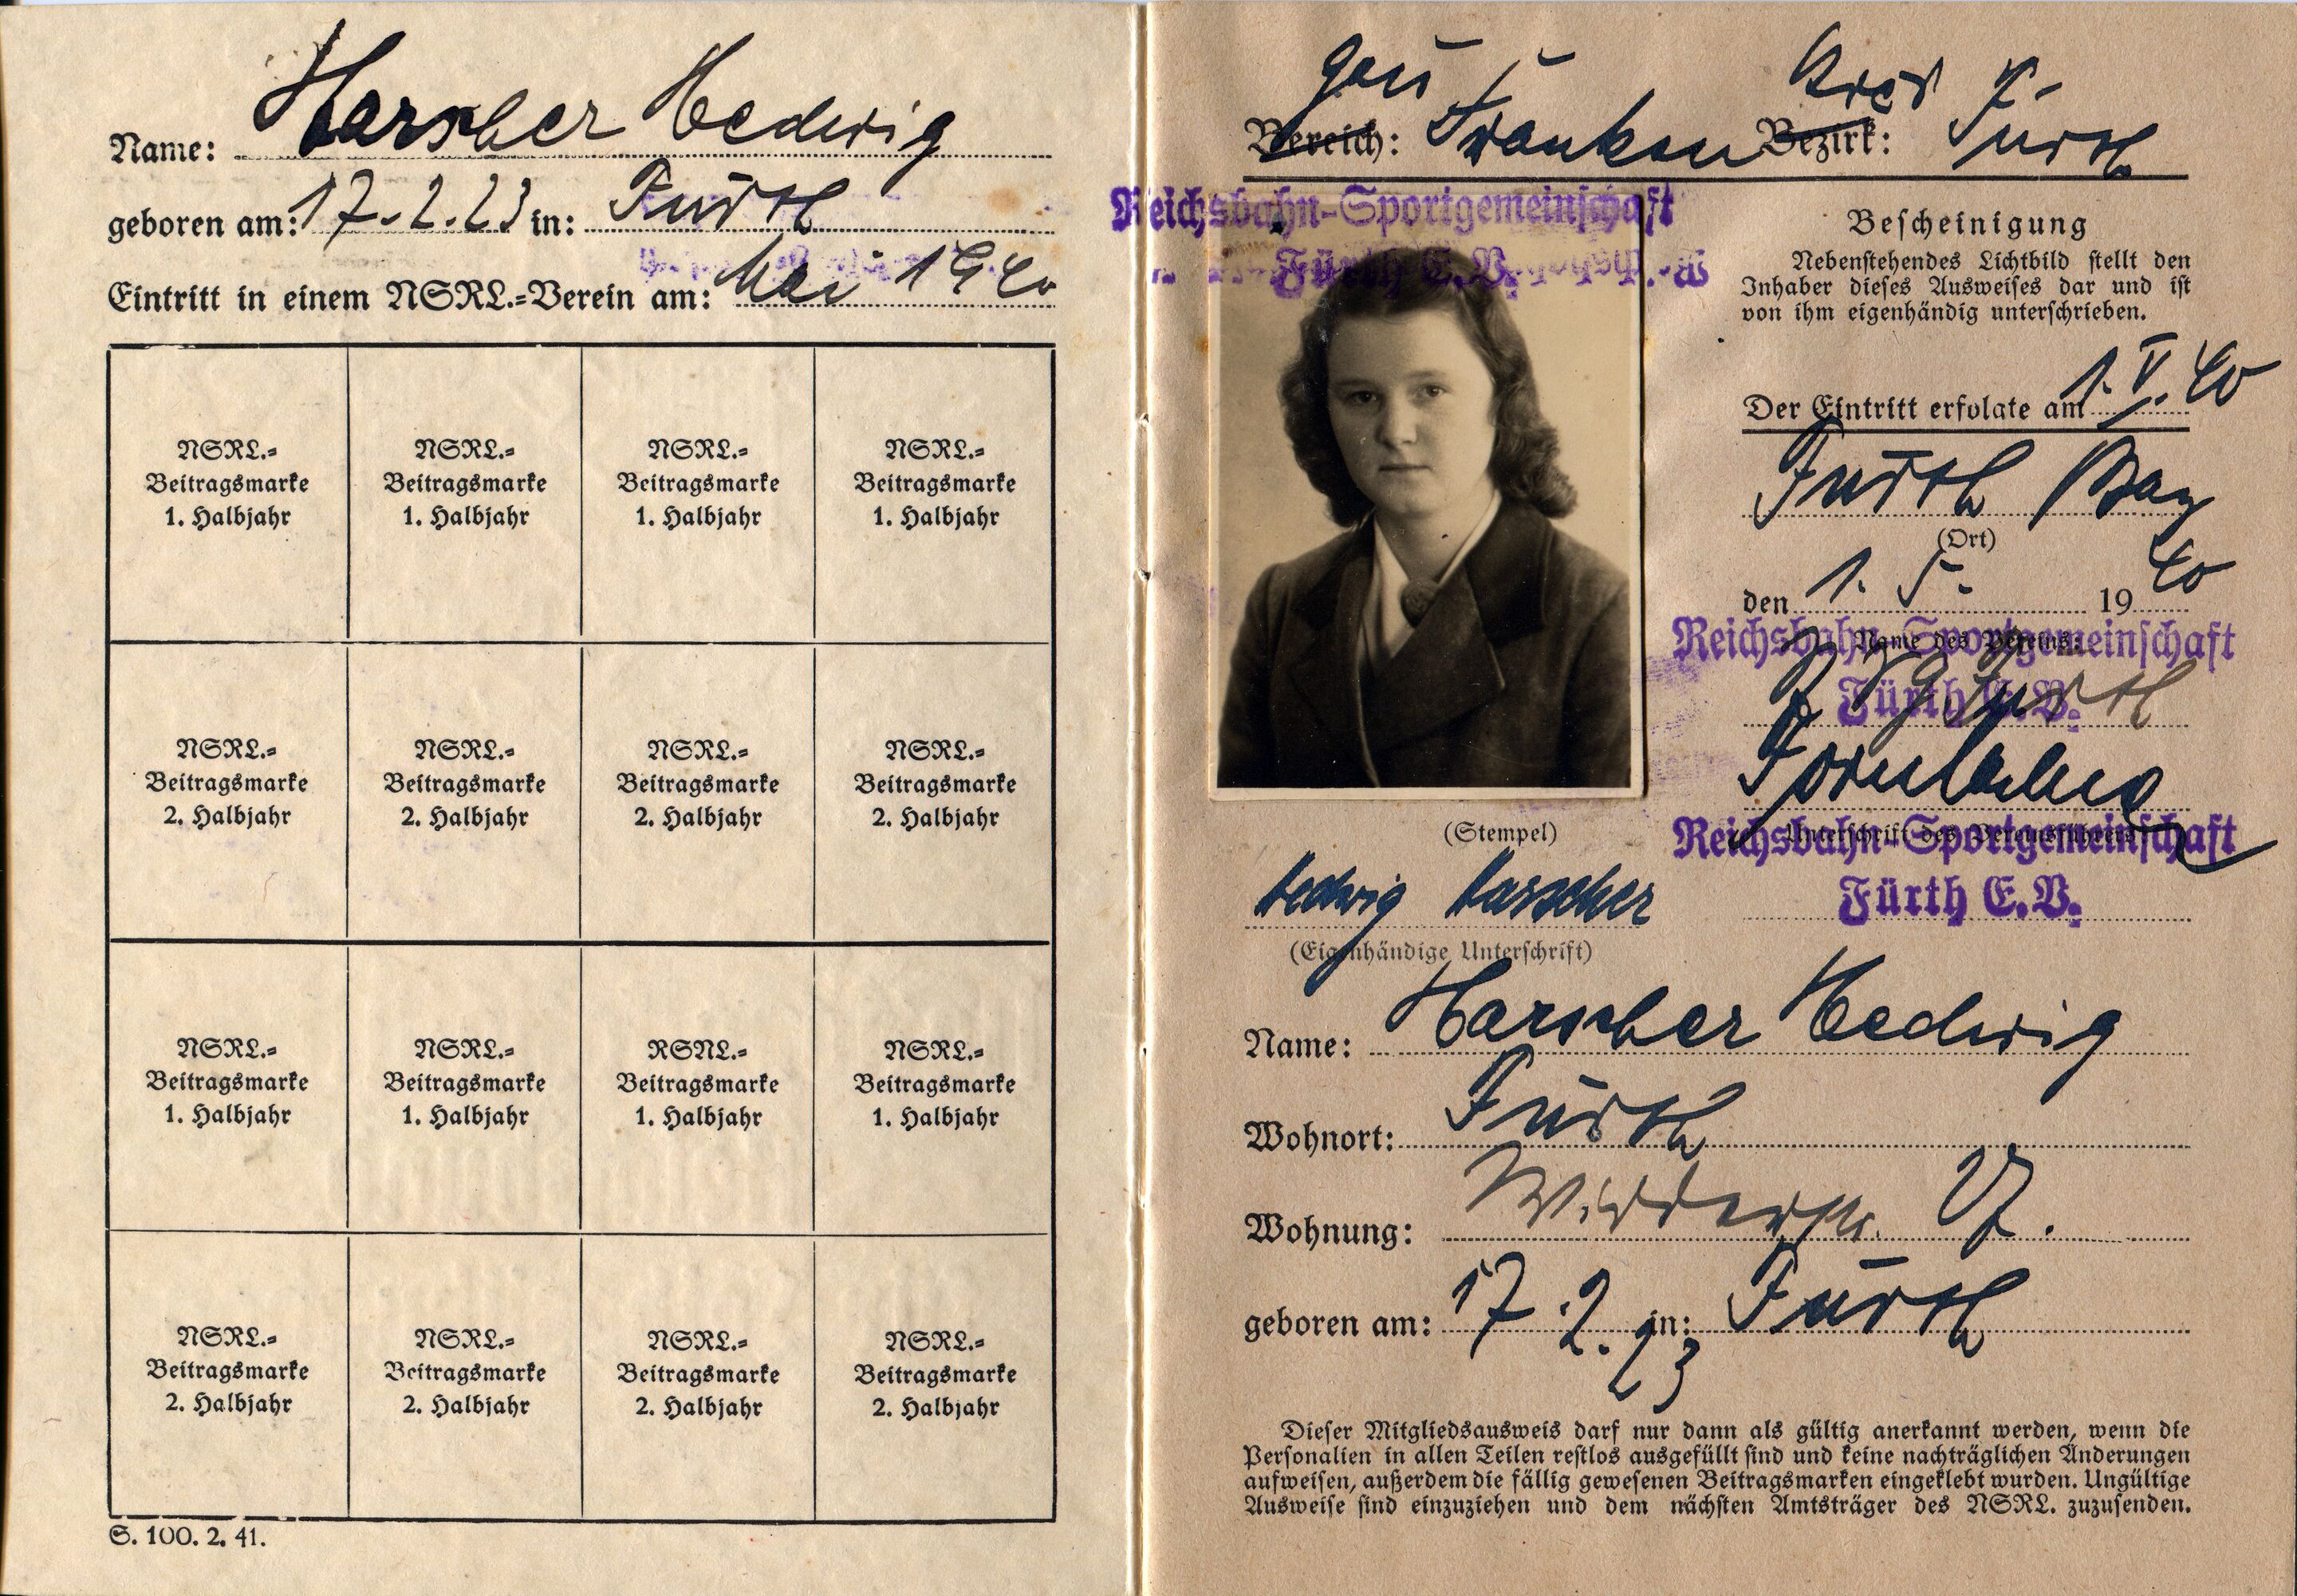 Name: Harscher Hedwig
geboren am: 17.2.23 in: Fürth
Eintritt in einem NSRL.=Verein am: Mai 1940
NSRL.= NSRL.= NSRL.= NSRL.=
Beitragsmarke Beitragsmarke Beitragsmarke Beitragsmarke
1. Halbjahr 1. Halbjahr 1. Halbjahr 1. Halbjahr
NSRL.= NSRL.= NSRL.= NSRL.=
Beitragsmarke Beitragsmarke Beitragsmarke Beitragsmarke
2. Halbjahr 2. Halbjahr 2. Halbjahr 2. Halbjahr
NSRL.= NSRL.= RSNL.= NSRL.=
Beitragsmarke Beitragsmarke Beitragsmarke Beitragsmarke
1. Halbjahr 1. Halbjahr 1. Halbjahr 1. Halbjahr
NSRL.= NSRL.= NSRL.= NSRL.=
Beitragsmarke Beitragsmarke Beitragsmarke Beitragsmarke
2. Halbjahr 2. Halbjahr 2. Halbjahr 2. Halbjahr
S. 100. 2. 41.
Gau Kreis
Bereich: Franken Bezirk: Fürth
Reichsbahn-Sportgemeinschaft
Fürth E.V.
Bescheinigung
Nebenstehendes Lichtbild stellt den
Inhaber dieses Ausweises dar und ist
von ihm eigenhändig unterschrieben.
Der Eintritt erfolgte am 1. V. 40
Fürth Bay
(Ort)
den 1. 5. 19 40
Name des Vereins:
Reichsbahn-Sportgemeinschaft
Fürth E.V.
Fürth
Unterschrift des Vereinsführers
Reichsbahn-Sportgemeinschaft
Fürth E.V.
(Stempel)
Hedwig Harscher
(Eigenhändige Unterschrift)
Name: Harscher Hedwig
Wohnort: Fürth
Wohnung: 17.
geboren am: 17.2.23 in: Fürth
Dieser Mitgliedsausweis darf nur dann als gültig anerkannt werden, wenn die
Personalien in allen Teilen restlos ausgefüllt sind und keine nachträglichen Änderungen
aufweisen, außerdem die fällig gewesenen Beitragsmarken eingeklebt wurden. Ungültige
Ausweise sind einzuziehen und dem nächsten Amtsträger des NSRL. zuzusenden.